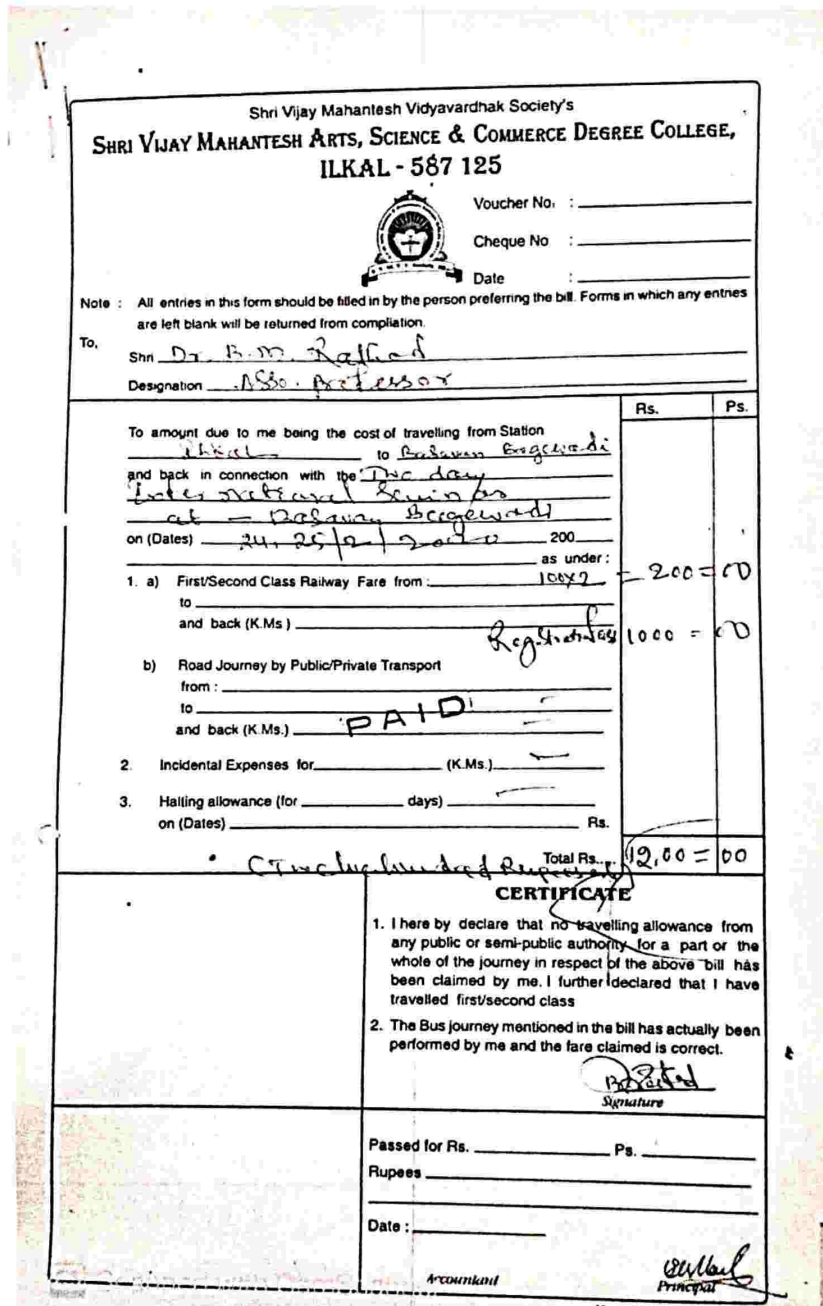 Shri Vijay Mahantesh Vidyavardhak Society's
SHRI VIJAY MAHANTESH ARTS, SCIENCE & COMMERCE DEGREE COLLEGE,
ILKAL - 587 125
Voucher No. :
Cheque No :
Date :
Note : All entries in this form should be filled in by the person preferring the bill. Forms in which any entries
are left blank will be returned from compliation.
To,
Shri Dr. B.M. Rathod
Designation Asso. Professor
Rs. Ps.
To amount due to me being the cost of travelling from Station
Ilkal to Basavan Bagewadi
and back in connection with the Two day
International Seminar
at - Basavan Bagewadi
on (Dates) 24, 25/2/2020 200
as under :
1. a) First/Second Class Railway Fare from : 100x2 = 200 = 00
to
and back (K.Ms ) Registration fees 1000 = 00
b) Road Journey by Public/Private Transport
from :
to
and back (K.Ms.) PAID
2. Incidental Expenses for (K.Ms.)
3. Halling allowance (for days)
on (Dates) Rs.
Total Rs... 12,00 = 00
CERTIFICATE
1. I here by declare that no travelling allowance from
any public or semi-public authority for a part or the
whole of the journey in respect of the above bill has
been claimed by me. I further declared that I have
travelled first/second class
2. The Bus journey mentioned in the bill has actually been
performed by me and the fare claimed is correct.
Signature
Passed for Rs. Ps.
Rupees
Date :
Accountant
Principal